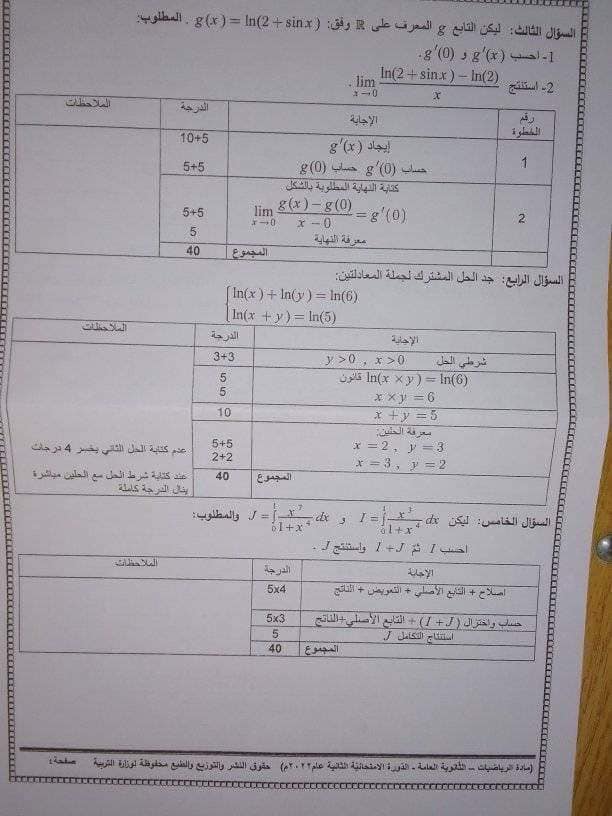 السؤال الثالث: ليكن التابع g المعرف على ℝ وفق: g(x) = ln(2 + sin x) . المطلوب:
1- احسب g'(x) و g'(0).
2- استنتج lim x→0 (ln(2 + sin x) − ln(2)) / x .
رقم الخطوة | الإجابة | الدرجة | الملاحظات
1 | إيجاد g'(x) | 10+5
حساب g'(0) حساب g(0) | 5+5
2 | كتابة النهاية المطلوبة بالشكل
lim x→0 (g(x) − g(0)) / (x − 0) = g'(0) | 5+5
معرفة النهاية | 5
المجموع | 40
السؤال الرابع: جد الحل المشترك لجملة المعادلتين:
{ ln(x) + ln(y) = ln(6)
ln(x + y) = ln(5)
الإجابة | الدرجة | الملاحظات
شرطي الحل x >0 , y >0 | 3+3
قانون ln(x × y) = ln(6) | 5
x × y = 6 | 5
x + y = 5 | 10
معرفة الحلين:
x = 2 , y = 3 | 5+5 | عدم كتابة الحل الثاني يخسر 4 درجات
x = 3 , y = 2 | 2+2
المجموع | 40 | عند كتابة شرط الحل مع الحلين مباشرة ينال الدرجة كاملة
السؤال الخامس: ليكن I = ∫₀¹ x³/(1+x⁴) dx و J = ∫₀¹ x⁷/(1+x⁴) dx والمطلوب:
احسب I ثمّ I + J واستنتج J .
الإجابة | الدرجة | الملاحظات
اصلاح + التابع الأصلي + التعويض + الناتج | 5x4
حساب واختزال (I + J) + التابع الأصلي+الناتج | 5x3
استنتاج التكامل J | 5
المجموع | 40
(مادة الرياضيات – الثانوية العامة - الدورة الامتحانية الثانية عام ٢٠٢٢م) حقوق النشر والتوزيع والطبع محفوظة لوزارة التربية صفحة ٤